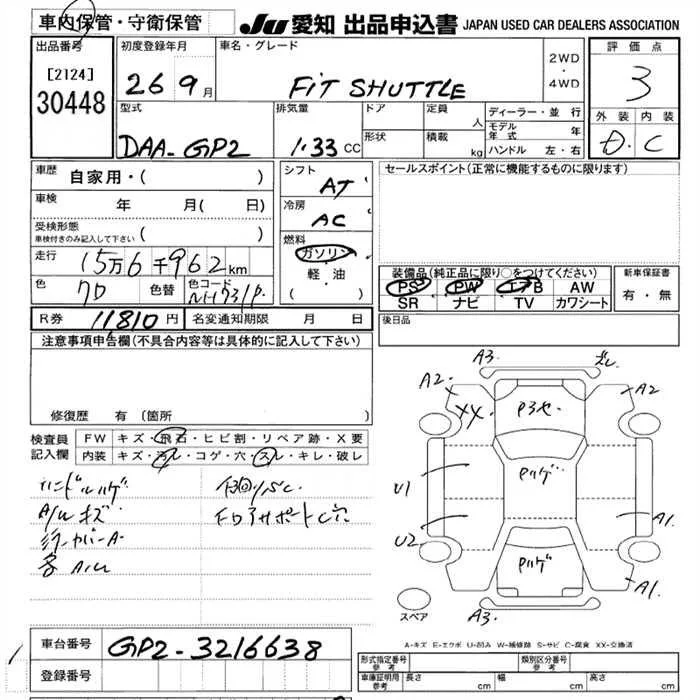 車内保管・守衛保管
JU 愛知 出品申込書 JAPAN USED CAR DEALERS ASSOCIATION
出品番号
[2124]
30448
初度登録年月
26 9月
車名・グレード
FIT SHUTTLE
2WD
・
4WD
評価点
3
外装 内装
D. C
型式
DAA-GP2
排気量
1.33 CC
ドア
形状
定員 人
積載 kg
ディーラー・並行
モデル年式 年
ハンドル 左・右
車歴
自家用・( )
車検 年 月( 日)
受検形態
車検付きのみ記入して下さい ( )
走行
15万6千962km
色
クロ
色替
色コード
NH731P
シフト
AT
冷房
AC
燃料
ガソリン
軽・油
( )
セールスポイント(正常に機能するものに限ります)
装備品(純正品に限り○をつけてください)
PS PW エアB AW
SR ナビ TV カワシート
新車保証書
有・無
R券 11810円
名変通知期限 月 日
後日品
注意事項申告欄(不具合内容等は具体的に記入して下さい)
修復歴 有 (箇所 )
検査員
記入欄
FW キズ・飛石・ヒビ割・リペア跡・X要
内装 キズ・汚レ・コゲ・穴・スレ・キレ・破レ
ハンドルハゲ
A/Uキズ
A/U
A3
A2
XX
P3ヤ
ズレ
A2
Pハゲ
U1
U2
A1
Pハゲ
A1
A3
スペア
A-キズ E-エクボ U-凹み W-補修跡 S-サビ C-腐食 XX-交換済
車台番号
GP2-3216638
登録番号
形式指定番号
参考
類別区分番号
参考
車庫証明用
参考
長さ cm 幅 cm 高さ cm